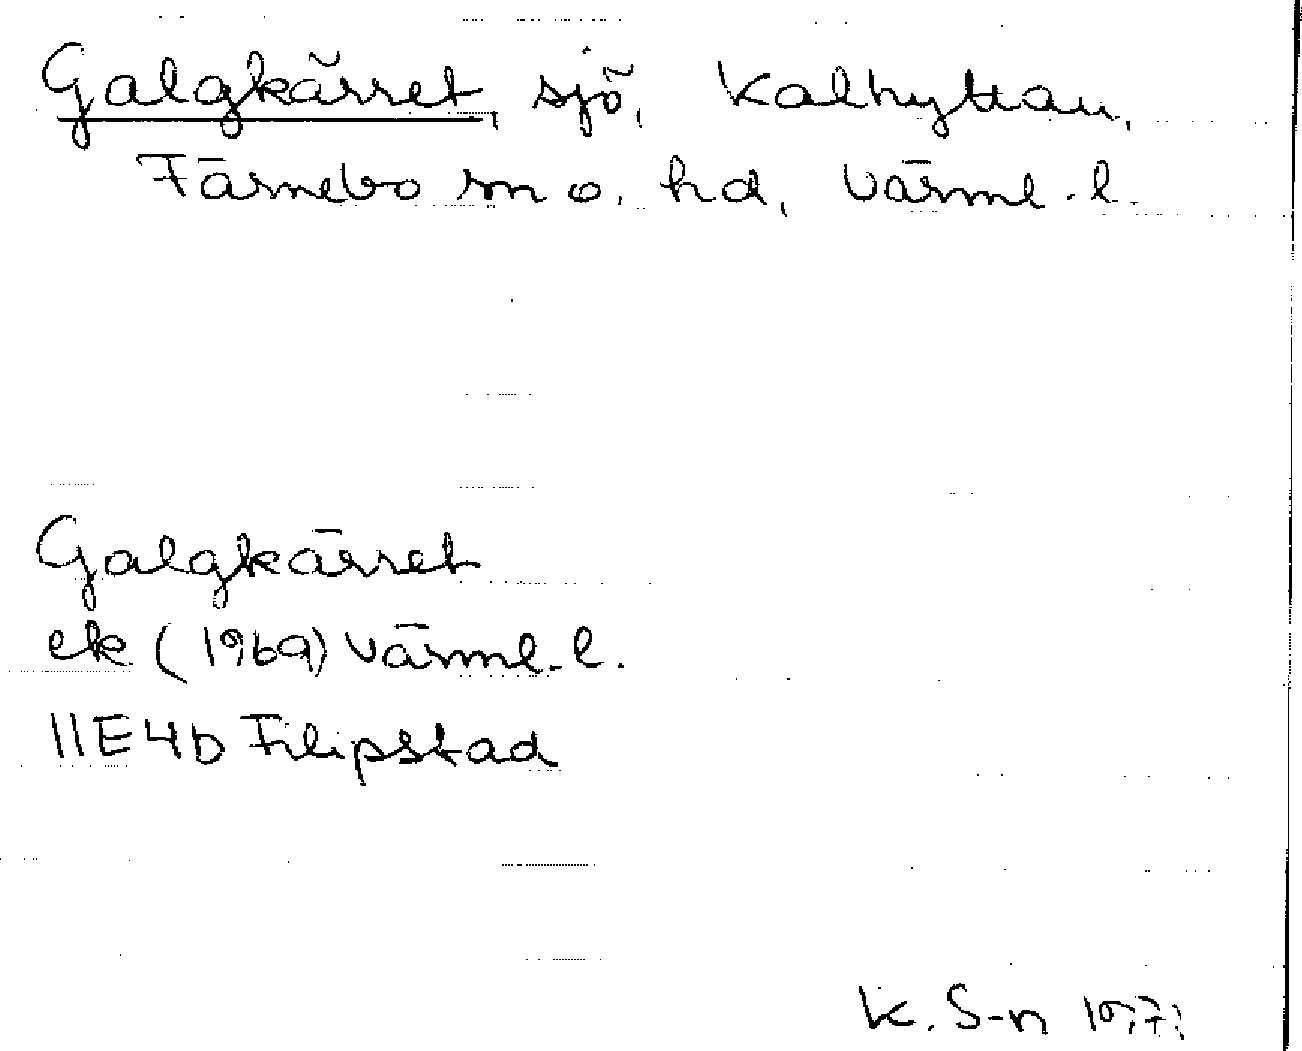 Galgkärret, sjö, Kalhyttan,
Färnebo sn o. hd, Värml. l.
Galgkärret
ek (1969) Värml. l.
11E4b Filipstad
K. S-n